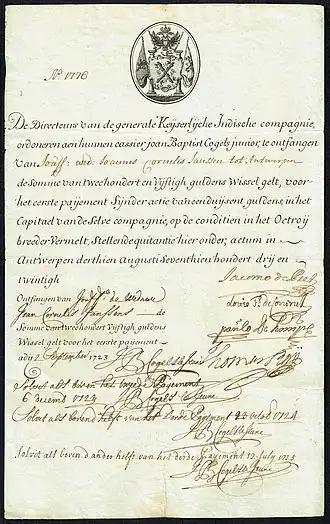 No 1776
De Directeurs van de generale Keyserlijcke Indische compagnie,
ordoneren aen hunnen cassier joan Baptist Cogels junior, te ontfangen
van Jouff: wed: Joannes Cornelis Janssen tot Antwerpen
de Somme van twehondert en Vijftigh guldens Wissel gelt, voor
het eerste paijement Synder actie van een duijsent guldens, in het
Capitael van de Selve compagnie, op de conditien in het Octroij
breeder Vermelt, Stellende quitantie hier onder, actum in
Antwerpen derthien Augusti Seventhien hondert drij en
twintigh
Jacomo de Pret
Ontfangen van de Weduwe
Jean Cornelis Janssens de
paulo De
Somme van twehondert Vijftigh guldens
Wissel gelt voor het eerste paijement
adij 2 September 1723
JB Cogels de Jeune
Thomas Ray
Solvit als boven het tweede Payement
6 decemb 1724
JB Cogels de Jeune
Solvit als boven d helft van het derde Payement 23 octob 1724
JB Cogels de Jeune
Solvit als boven d ander helft van het derde payement 12 July 1725
JB Cogels de Jeune